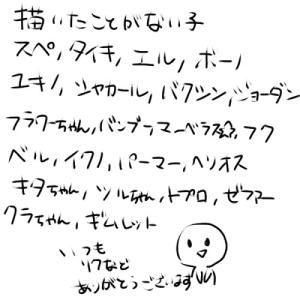 描いたことがない子
スペ,タイキ,エル,ボーノ
ユキノ,シャカール,バクシン,ジョーダン
フラワーちゃん,バンブーマーベラス,フク
ベル,イクノ,パーマー,ヘリオス
キタちゃん,ツルちゃん,トプロ,ゼファー
クラちゃん,ギムレット
いつも
リクなど
ありがとうございます